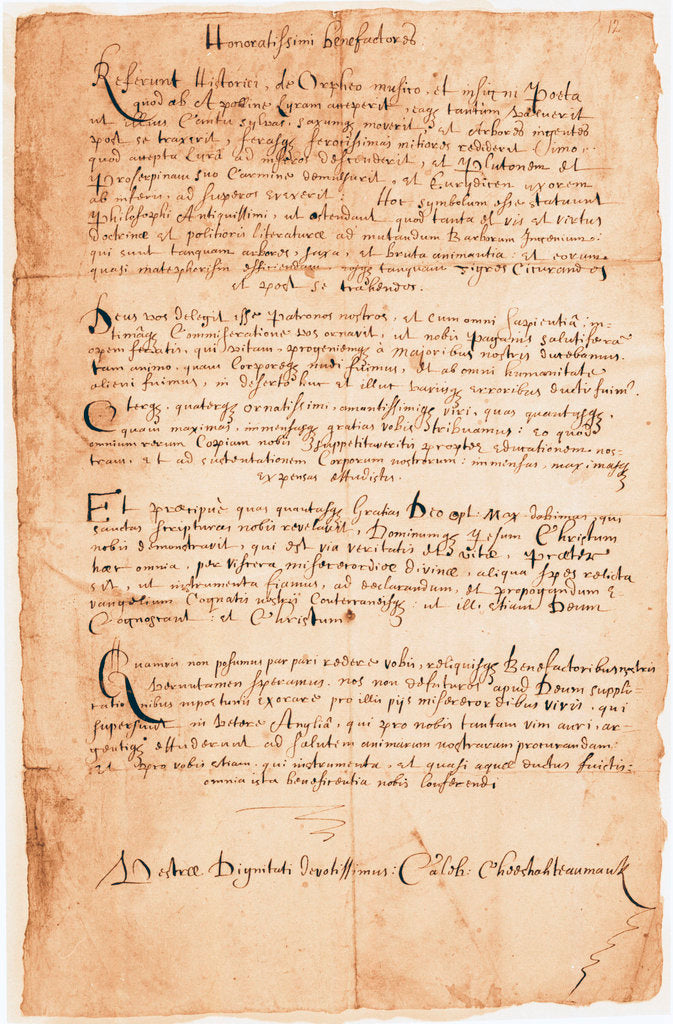 12
Honoratissimi benefactores
Referunt Historici, de Orpheo musico, et insigni Poeta
quod ab Apolline Lyram acceperit, eaqȝ tantum valuerit
ut illius Cantu sylvas, saxumqȝ moverit, et Arbores ingentes
post se traxerit, ferasqȝ ferocissimas mitiores rediderit Jimo,
quod accepta Lyra ad inferos descenderit, et Plutonem et
Proserpinam suo Carmine demulserit, et Eurydicen uxorem
ab inferis ad superos evexerit: Hoc symbolum esse statuunt
Philosophi Antiquissimi, ut ostendant quod tanta et vis et virtus
doctrinæ et politioris literaturæ ad mutandum Barborum Ingenium:
qui sunt tanquam arbores, saxa, et bruta animantia: et eorum
quasi matephorisin efficiendam, eosqȝ tanquam Tigres Cicurandos
et post se trahendos.
Deus vos delegit esse Patronos nostros, et cum omni sapientiâ in-
timâqȝ Commiseratione vos ornavit, ut nobis Paganis salutiferā
opem feratis, qui vitam, progeniemqȝ a majoribus nostris ducebamus,
tam animo, quam Corporeqȝ nudi fuimus, et ab omni humanitate
alieni fuimus, in deserto huc et illuc varijsqȝ erroribus ducti fuimꝰ.
O terqȝ, quaterqȝ ornatissimi, amantissimiqȝ viri, quas quantasqȝ
quam maximas, immensasqȝ gratias vobis tribuamus: eo quod
omnium rerum Copiam nobis suppetitaveritis propter educationem nos-
tram, et ad sustentationem Corporum nostrorum: immensas, maximasqȝ
expensas effudistis.
Et præcipuè quas quantasqȝ Gratias Deo opt: Max dabimus, qui
sanctas scripturas nobis revelavit, Dominumqȝ Jesum Christum
nobis demonstravit, qui est via veritatis et vitæ, Præter
hæc omnia, per viscera misericordiæ divinæ, aliqua spes relicta
sit, ut instrumenta fiamus, ad declarandum, et propogandum e-
vangelium Cognatis nostris Conterraneisqȝ: ut illi etiam Deum
Cognoscant: et Christum
Quamvis non posumus par pari redere vobis, reliquisqȝ Benefactoribus nostris
veruntamen speramus, nos non defuturos apud Deum suppli-
cationibus inportunis exorare pro illis pijs misericordibus viris, qui
supersunt in vetere Anglia, qui pro nobis tantam vim auri, ar-
gentiqȝ effuderunt ad salutem animarum nostrarum procurandam
et pro vobis etiam, qui instrumenta, et quasi aquæ ductus fuistis:
omnia ista beneficentia nobis Conferendi
Vestræ Dignitati devotissimus: Caleb: Cheeshahteaumauk